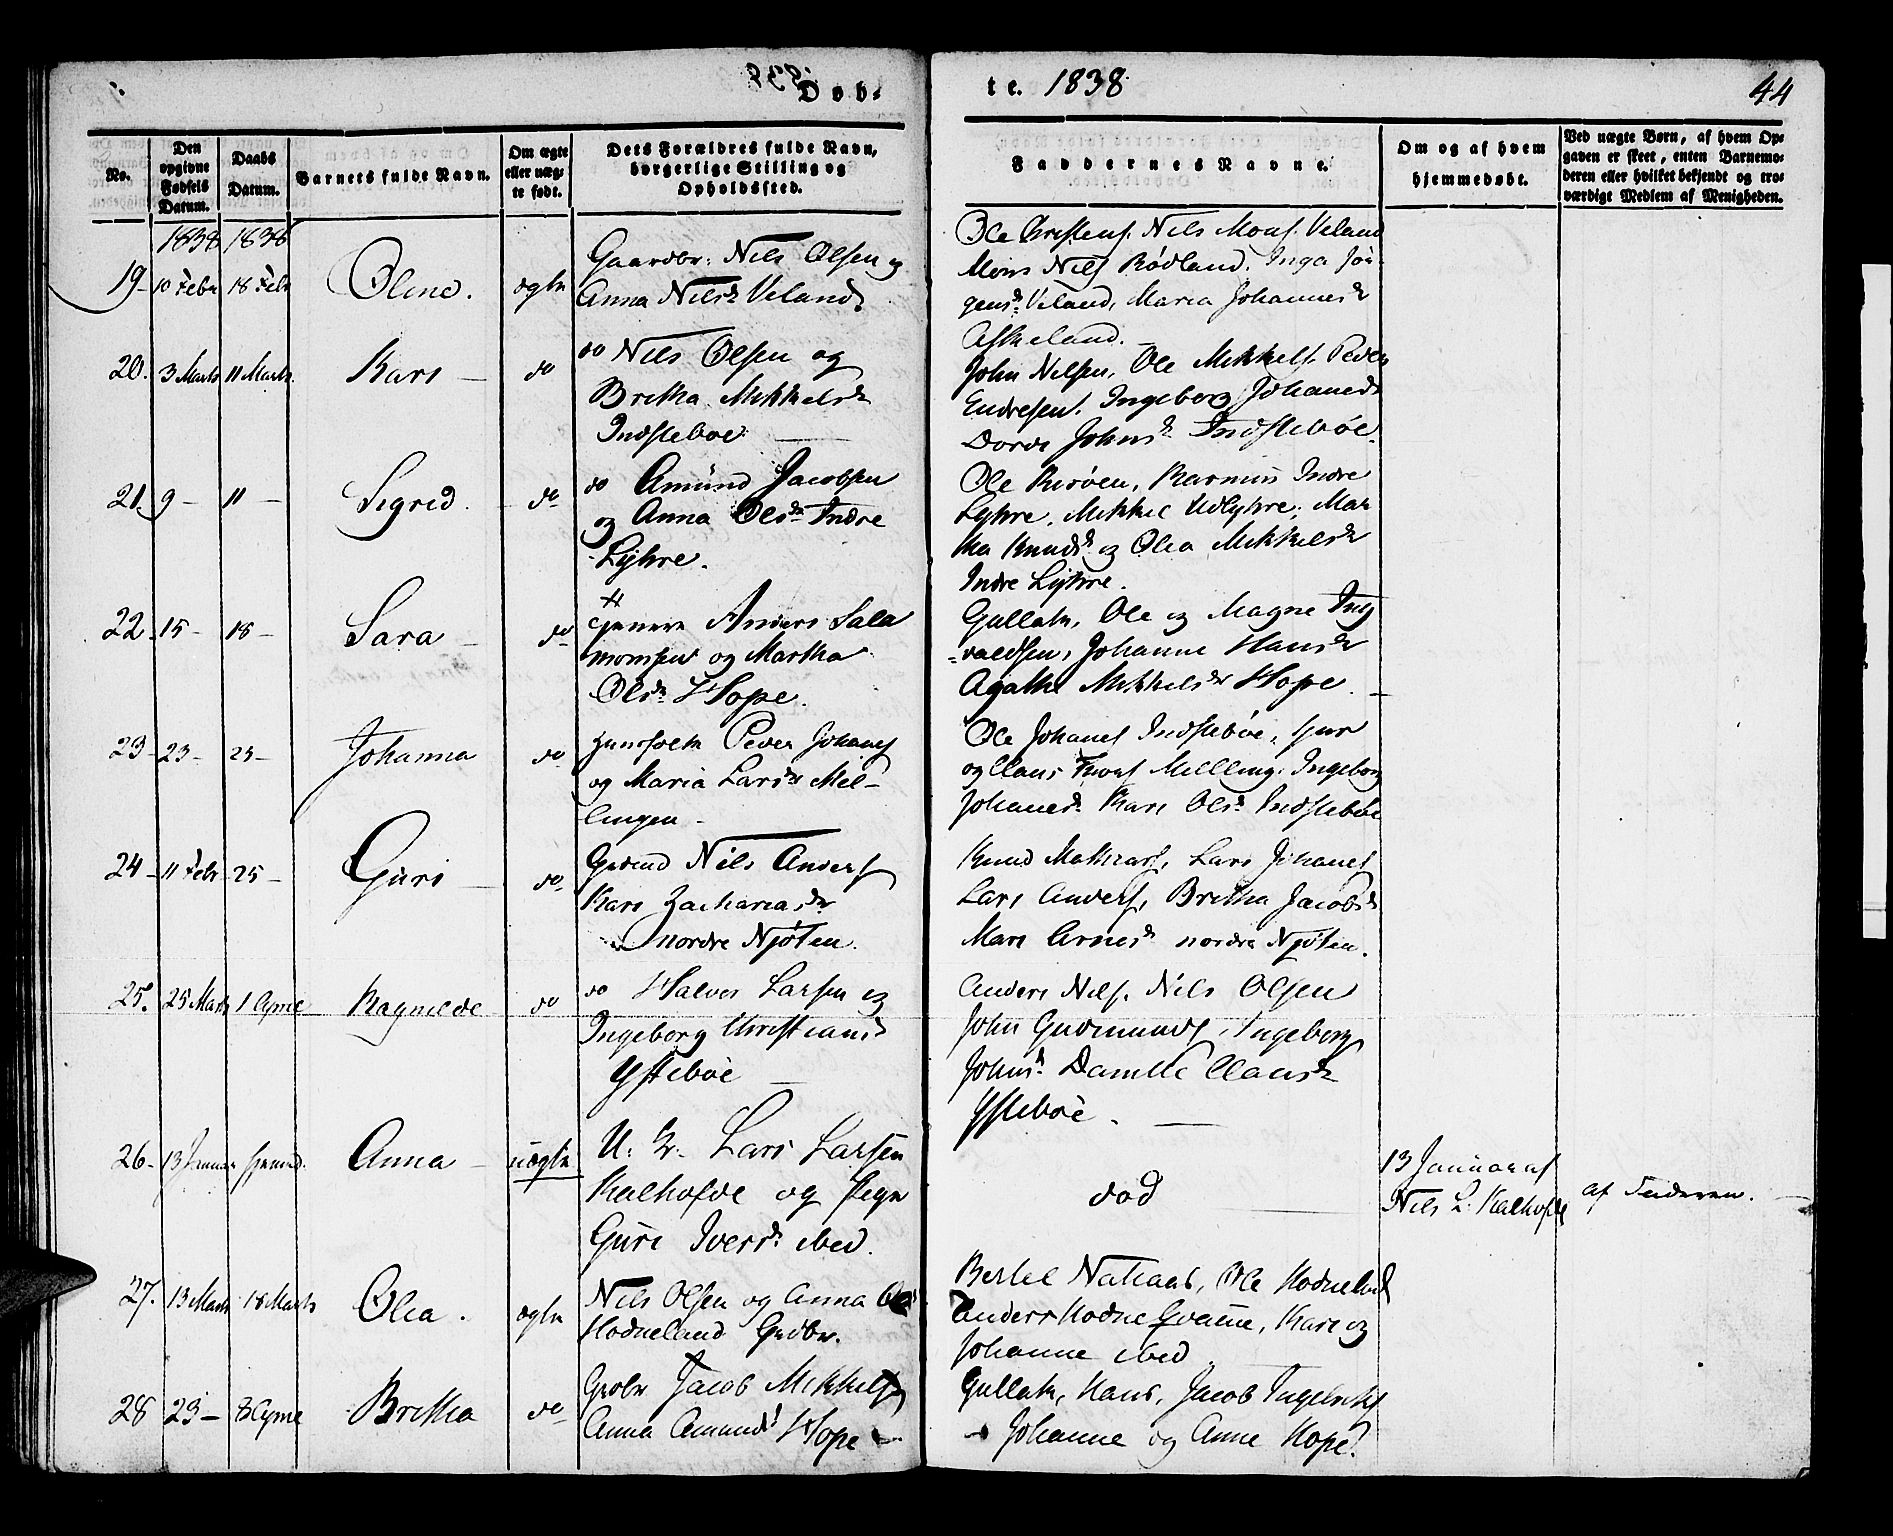 Døb-
te. 1838
44
No.
Den opgivne Fødsels Datum.
Daabs Datum.
Barnets fulde Navn.
Om ægte eller uægte født.
Dets Forældres fulde Navn, borgerlige Stilling og Opholdssted.
Faddernes Navne.
Om og af hvem hjemmedøbt.
Ved uægte Børn, af hvem Opgaven er skeet, enten Barnemoderen eller hvilket bekjendt og troværdigt Medlem af Menigheden.
1838 1838
19 10 Febr 18 Febr Oline. ægte
Gaardbr: Nils Olsen og
Anna Nilsd Veland
Ole Christens. Nils Mons. Veland
Mons Nils Rødland. Inga Jør-
gensd Veland, Maria Johannesd
Askeland.
20. 3 Marts 11 Marts. Kari - do
do Nils Olsen og
Britha Mikkelsd
Indstebøe
John Nilsen, Ole Mikkels. Peder
Endresen. Ingeborg Johannesd
Dorde Johnsd Indstebøe.
21. 9 - 11 - Sigrid. - do
do Amund Jacobsen
og Anna Olsd Indre
Lykre.
Ole Risøen, Rasmus Indre
Lykre, Mikkel Udlykre, Mar
tha Knudsd og Olea Mikkelsd
Indre Lykre.
22. 15 - 18 - Sara - do
Anders Sala
monsen og Martha
Olsd Hope.
Gullak, Ole og Magne Ing
valdsen, Johanne Hansd
Agathe Mikkelsd Hope. -
23 23 - 25 - Johanna do
Peder Johans
og Maria Larsd Mil-
lingen -
Ole Johans Indstebøe, Iver
og Claus Millling. Ingeborg
Johanesd Kari Olsd Indstebøe
24 - 11 Febr 25 - Guri - do
Grdmd Nils Anders
Kari Zachariasd
nordre Njøten.
Knud Mathias, Lars Johans
Lars Anders, Britha Jacobsd
Mari Arnesd nordre Njøten.
25. 25 Marts 1 Apriil Ragnilde do
do Halvor Larsen og
Ingeborg Christiansd
Ystebøe -
Anders Nils. Nils Olsen
John Gudmunds, Ingeborg
Johnsd Damthe Clausd
Ystebøe. -
26 - 13 Januar hjemmed. Anna - uægte
U. K. Lars Larsen
Kalhofde og Pige
Guri Iversd ibid.
død
13 Januar af
Nils L. Kalhofde
af Faderen. -
27. 13 Marts 18 Marts Olea. ægte
Nils Olsen og Anna
Hodneland Grdbr.
Bertel Natraas, Ole Hodneland
Anders Hodne Qvamme, Kari og
Johanne ibid
28 23 - 8 Apriil Britha do
Grdbr Jacob Mikkels
Anna Amunds Hope -
Gullak, Hans, Jacob
Johanne og Anne Hope.